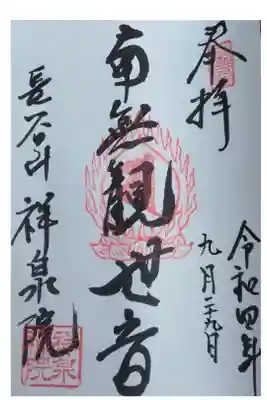 奉拝
令和四年
九月二十九日
南無観世音
長谷山
祥泉院
祥泉院